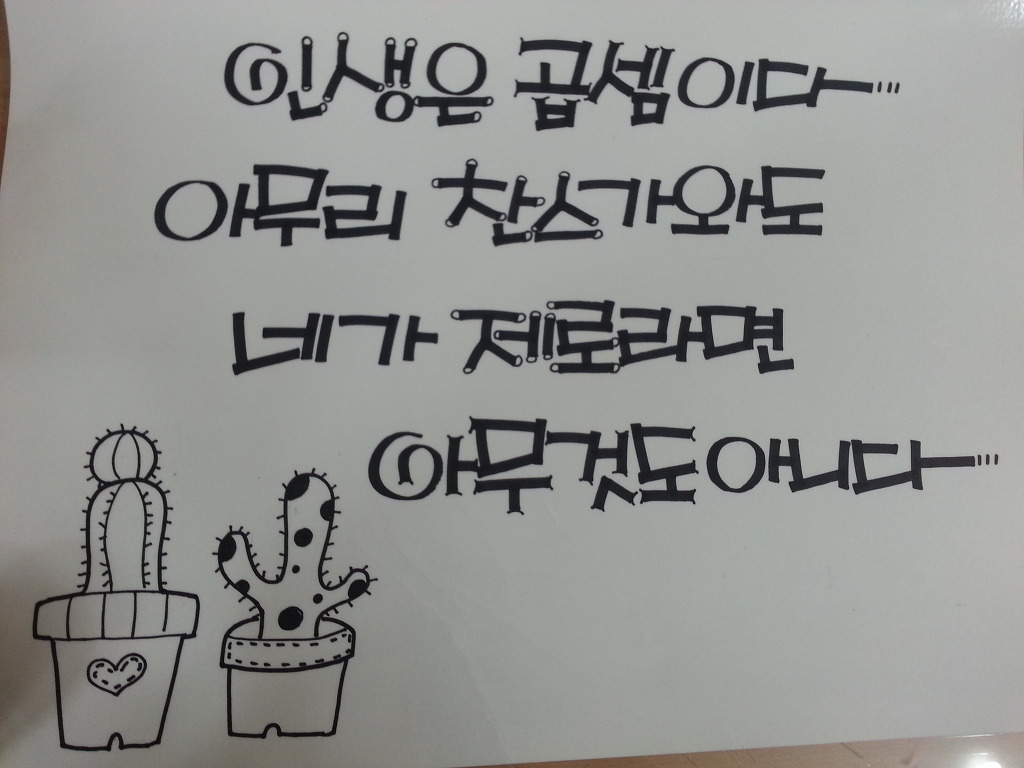 인생은 곱셈이다...
아무리 찬스가와도
네가 제로라면
아무것도아니다...